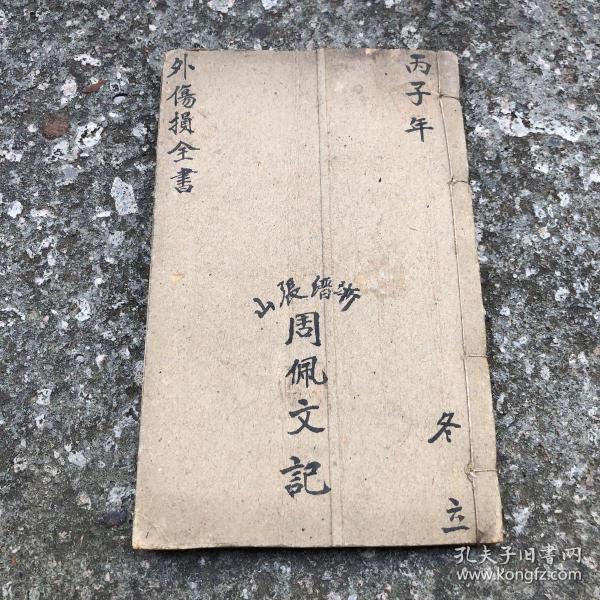 丙子年
冬
立
張縉
山
周佩文記
外傷損全書
孔夫子旧書网
www.kongfz.com